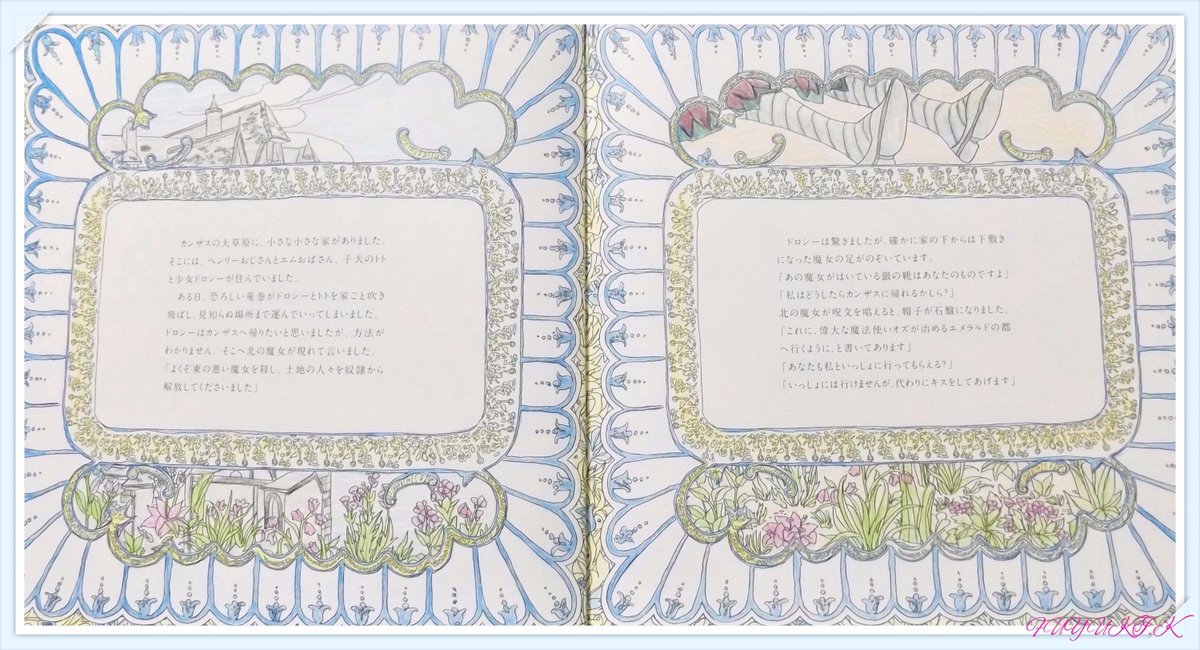 カンザスの大草原に、小さな小さな家がありました。
そこには、ヘンリーおじさんとエムおばさん、子犬のトト
と少女ドロシーが住んでいました。
ある日、恐ろしい竜巻がドロシーとトトを家ごと吹き
飛ばし、見知らぬ場所まで運んでいってしまいました。
ドロシーはカンザスへ帰りたいと思いましたが、方法が
わかりません。そこへ北の魔女が現れて言いました。
「よくぞ東の悪い魔女を殺し、土地の人々を奴隷から
解放してくださいました」
ドロシーは驚きましたが、確かに家の下からは下敷き
になった魔女の足がのぞいています。
「あの魔女がはいている銀の靴はあなたのものですよ」
「私はどうしたらカンザスに帰れるかしら?」
北の魔女が呪文を唱えると、帽子が石盤になりました。
「これに、偉大な魔法使いオズが治めるエメラルドの都
へ行くように、と書いてあります」
「あなたも私といっしょに行ってもらえる?」
「いっしょには行けませんが、代わりにキスをしてあげます」